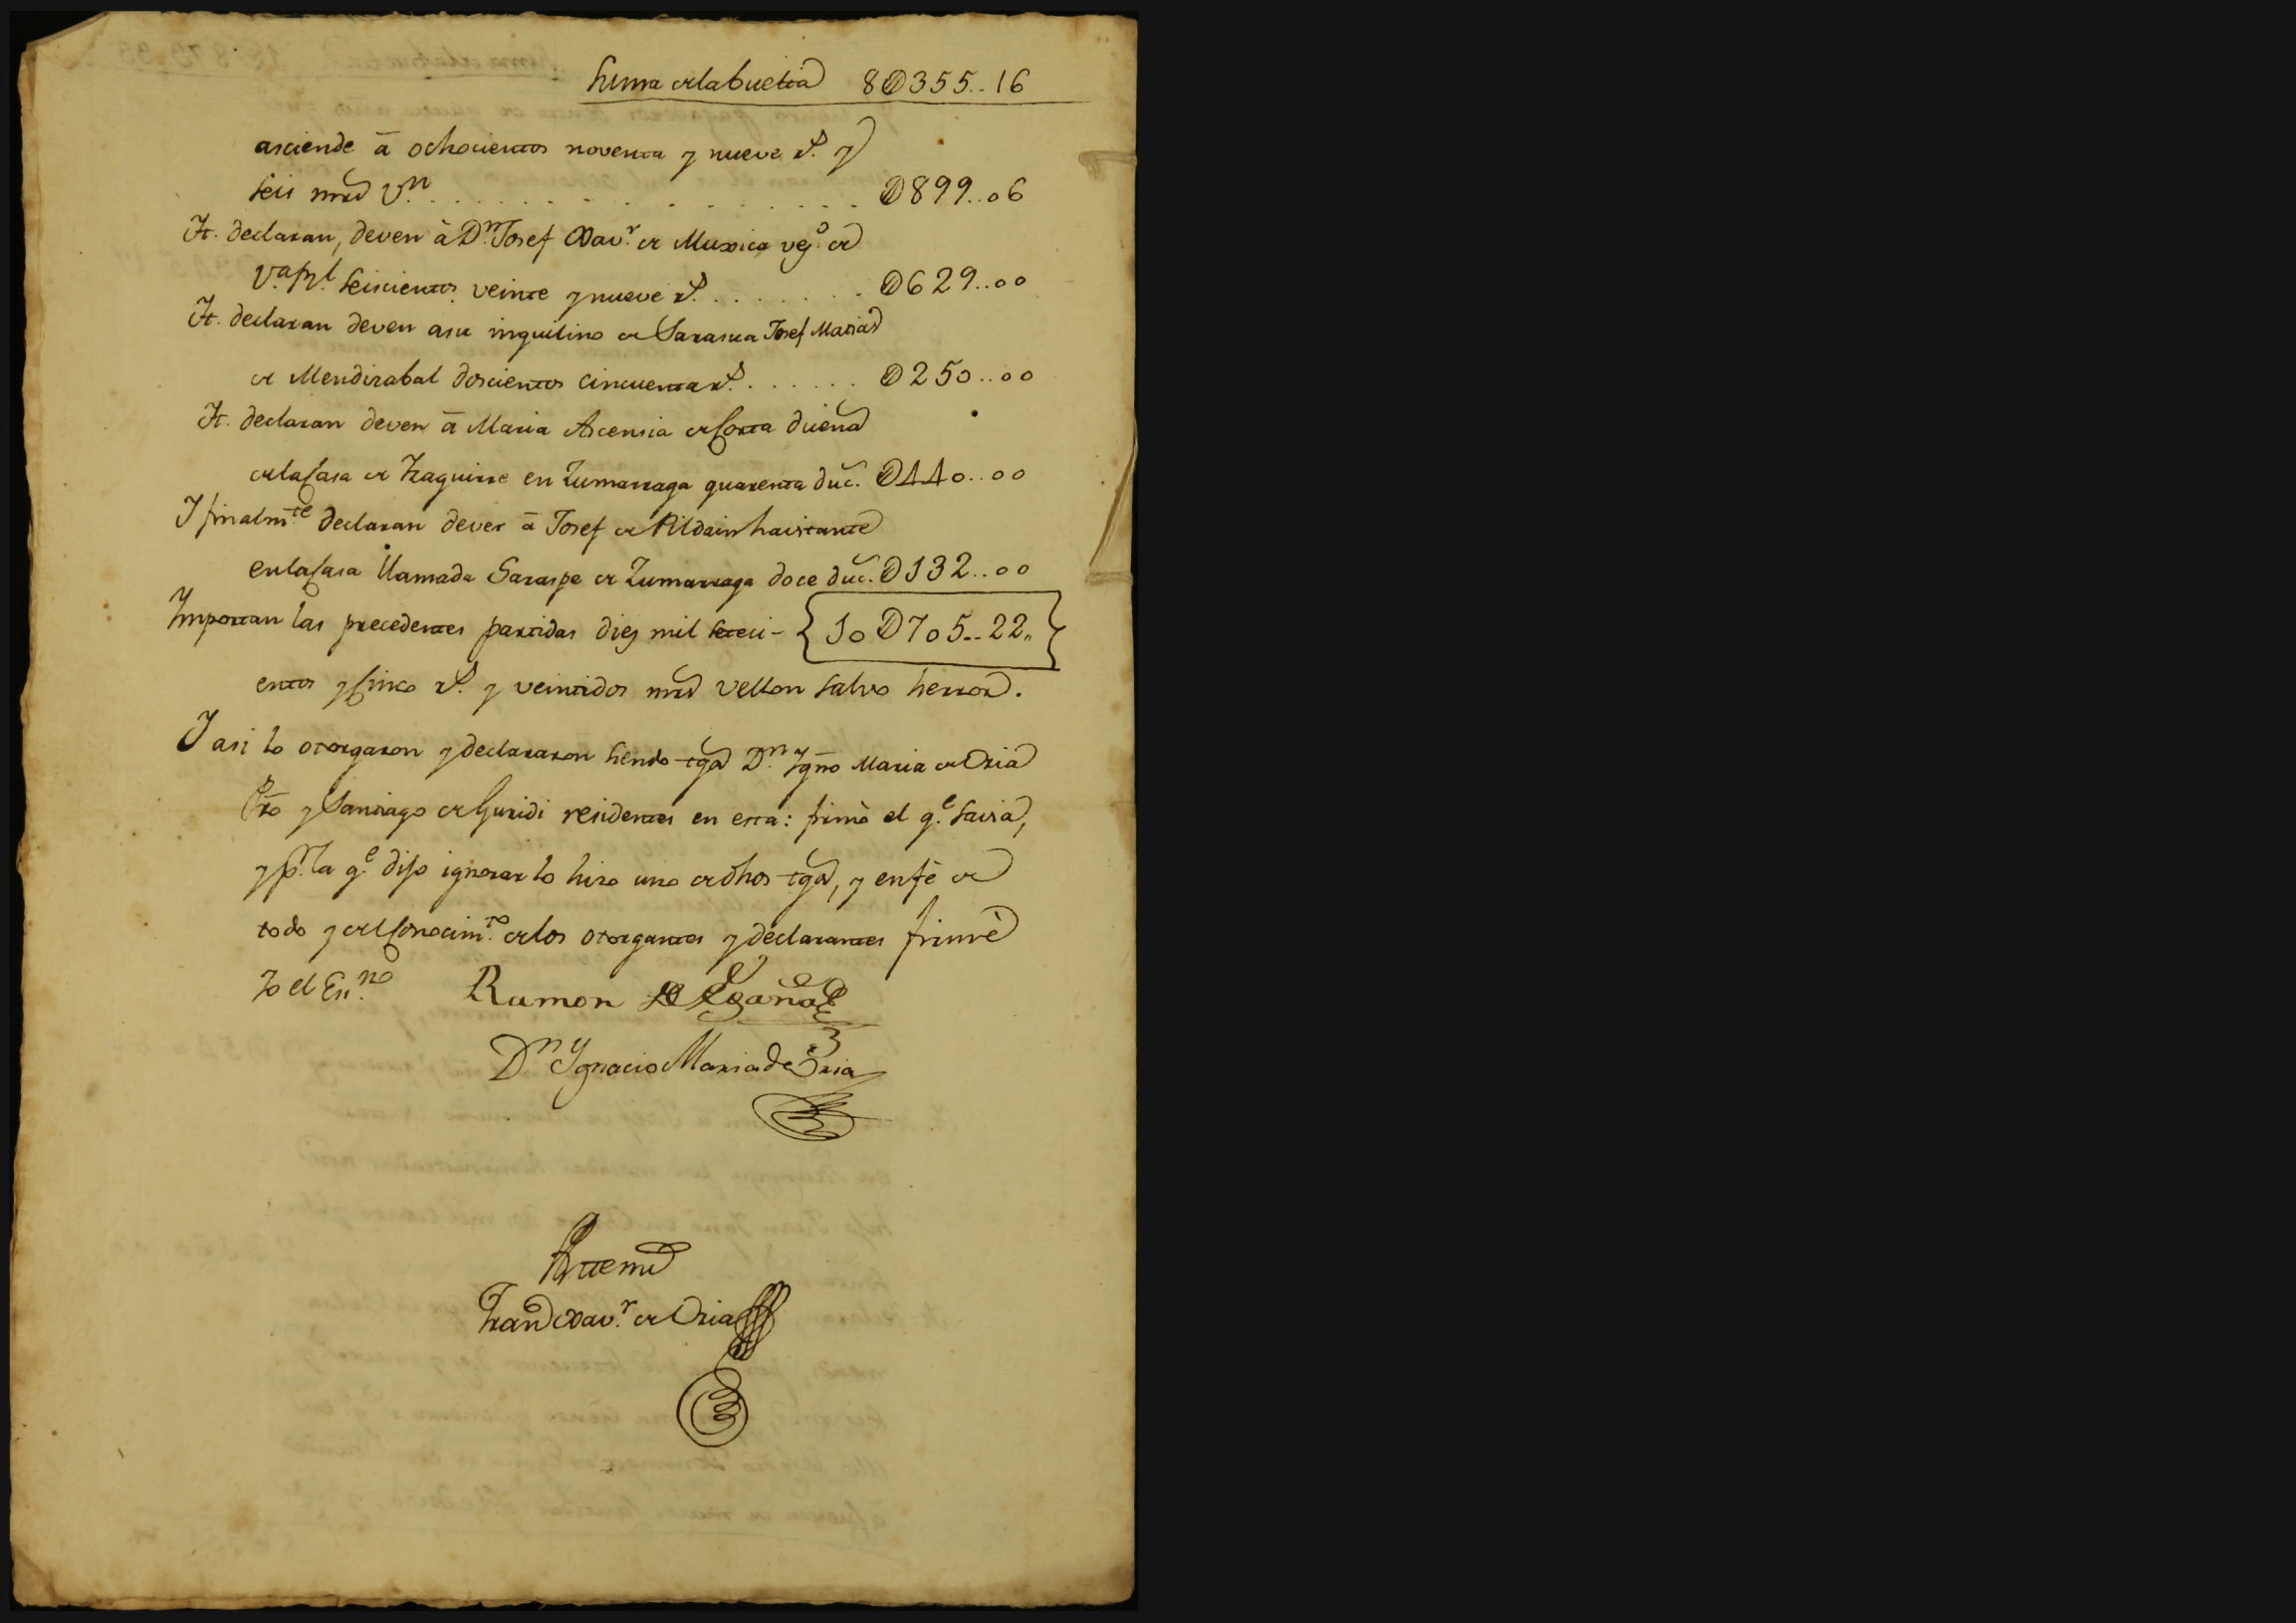 Suma de la buelta 8D355..16
asciende â ochocientos noventa y nueve rs. y
seis mrs Vn. . . . . . . . . . . D899..06
It. declaran, deven à Dn. Josef Xavr. de Muxica vezo. de
Va.Rl. seiscientos veinte y nueve rs. . . . . . . D629..00
It. declaran deven asu inquilino de Sarasua Josef Maria
de Mendizabal doscientos cincuenta rs. . . . . . . D250..00
It. declaran deven â Maria Ascensia de Corta dueña
de la Casa de Izaguirre en Zumarraga quarenta duc. D440..00
I finalmte. declaran dever â Josef de Alldain havitante
en la Casa llamada Saraspe de Zumarraga doce duc. D132..00
Importan las precedentes partidas diez mil seteci- 10D705..22,,
entos y Cinco rs. y veintidos mrs vellon salvo herror.
I asi lo otorgaron y declararon siendo tgos Dn. Igno Maria de Oria
Pro y Santiago de Guridi residentes en esta: firmò el qe. savia,
y pr. la qe. dijo ignorar lo hizo uno de dhos tgos, y en fè de
todo y del Conocimto. de los otorgantes y declarantes firmè
Yo el Esno.
Ramon de Egaña
Dn Ygnacio Maria de Oria
Ante mi
Franco Xavr. de Oria